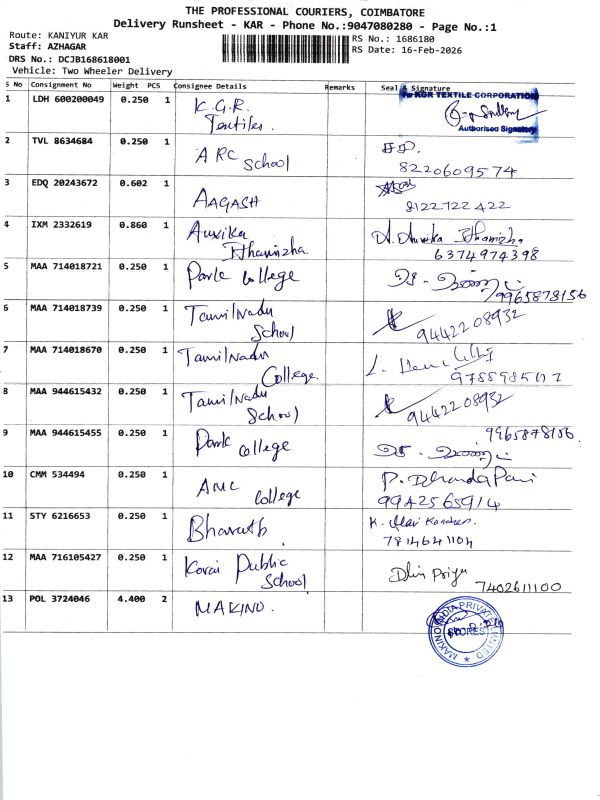 THE PROFESSIONAL COURIERS, COIMBATORE
Delivery Runsheet - KAR - Phone No.:9047080280 - Page No.:1
Route: KANIYUR KAR
RS No.: 1686180
Staff: AZHAGAR
RS Date: 16-Feb-2026
DRS No.: DCJB168618001
Vehicle: Two Wheeler Delivery
S No Consignment No Weight PCS Consignee Details Remarks Seal & Signature
1 LDH 600200049 0.250 1 K.G.R. For KGR TEXTILE CORPORATION
Textiles. Authorised Signatory
2 TVL 8634684 0.250 1 ARC
School 8220609574
3 EDQ 20243672 0.602 1 AAGASH
8122722422
4 IXM 2332619 0.860 1 Auvika A. Auvika Ithamizha
Ithamizha 6374974398
5 MAA 714018721 0.250 1 Park College
9965878156
6 MAA 714018739 0.250 1 TamilNadu
School 9442208932
7 MAA 714018670 0.250 1 TamilNadu
College.
8 MAA 944615432 0.250 1 TamilNadu
School 9442208932
9 MAA 944615455 0.250 1 Park College 9965878156.
10 CMM 534494 0.250 1 AMC P. DhandaPani
College 9942565914
11 STY 6216653 0.250 1 Bharath K. Mari
7814641104
12 MAA 716105427 0.250 1 Korai Public
School Priya 7402611100
13 POL 3724046 4.400 2 MAKINO.
MAKINO INDIA PRIVATE LIMITED
STORES